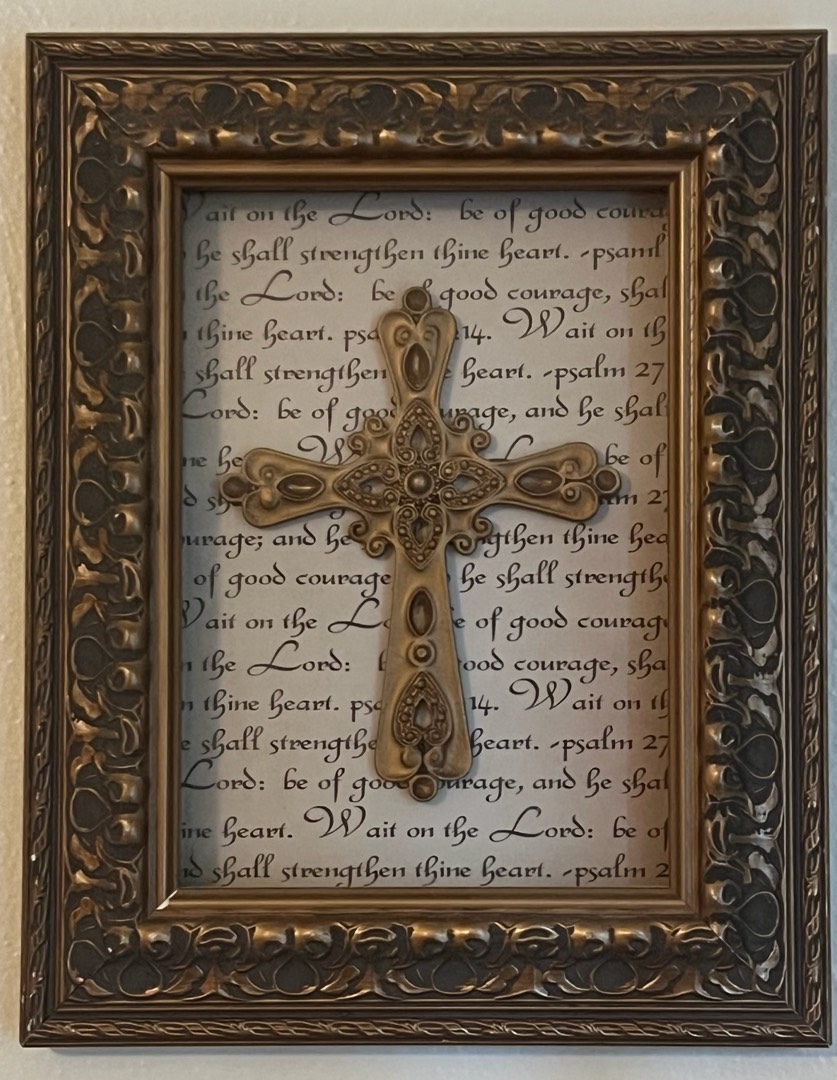 ait on the Lord: be of good coura
he shall strengthen thine heart. -psaml
the Lord: be of good courage, shal
thine heart. psa 14. Wait on th
shall strengthen heart. -psalm 27
Lord: be of good urage, and he shal
ne he W L be of
d sh lm 27
urage; and he gthen thine hea
of good courage he shall strength
Wait on the Lo e of good courag
n the Lord: ood courage, sha
n thine heart. psa 14. Wait on th
e shall strengthe heart. -psalm 27
Lord: be of goo urage, and he sha
ine heart. Wait on the Lord: be of
nd shall strengthen thine heart. -psalm 2